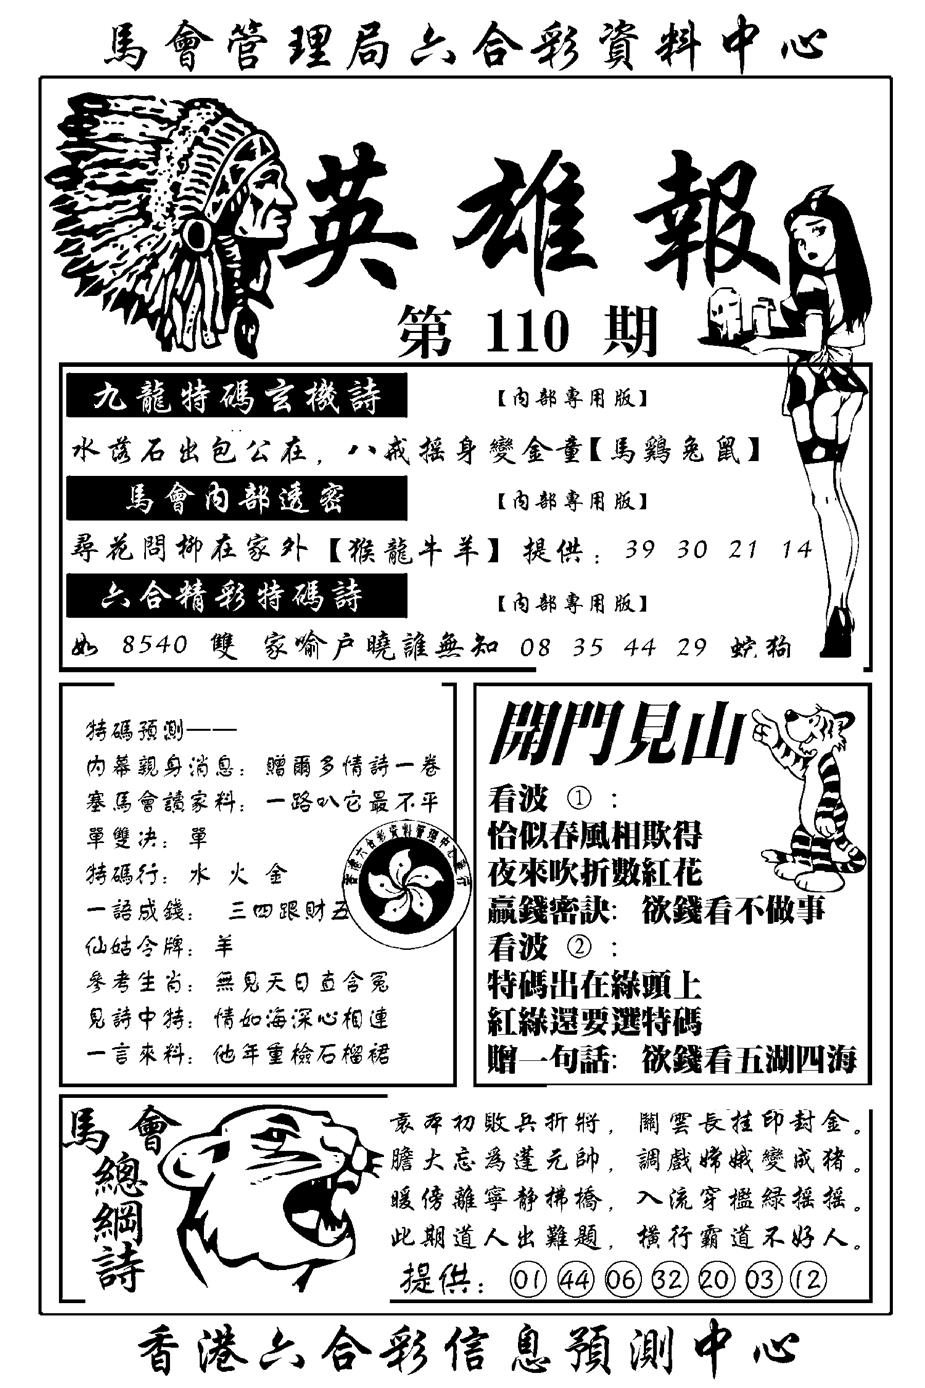 馬會管理局六合彩資料中心
英雄報
第 110 期
九龍特碼玄機詩 【內部專用版】
水落石出包公在，八戒搖身變金童【馬鷄兔鼠】
馬會內部透密 【內部專用版】
尋花問柳在家外【猴龍牛羊】提供：39 30 21 14
六合精彩特碼詩 【內部專用版】
如 8540 雙 家喻户曉誰無知 08 35 44 29 蛇狗
特碼預測——
內幕親身消息：贈爾多情詩一卷
塞馬會讀家料：一路叭它最不平
單雙决：單
特碼行：水 火 金
一語成錢： 三四跟財五
仙姑令牌：羊
參考生肖：無見天日直含冤
見詩中特：情如海深心相連
一言來料：他年重檢石榴裙
香港六合彩資料管理中心發行
開門見山
看波 ①：
恰似春風相欺得
夜來吹折數紅花
贏錢密訣：欲錢看不做事
看波 ②：
特碼出在綠頭上
紅綠還要選特碼
贈一句話：欲錢看五湖四海
馬會
總綱詩
袁本初敗兵折將，關雲長挂印封金。
膽大忘為蓬元帥，調戲嫦娥變成猪。
暖傍離寧静拂橋，入流穿檻緑摇摇。
此期道人出難題，橫行霸道不好人。
提供：01 44 06 32 20 03 12
香港六合彩信息預測中心